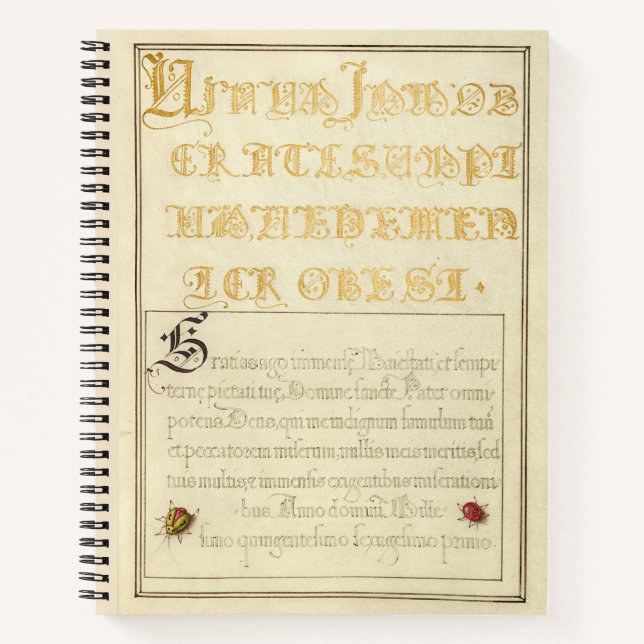 VINUM IMMOD
ERATE SUMPT
UM, VEHEMEN
TER OBEST.
Gratias ago immensę Maiestati, et sempi-
ternę pietati tuę, Domine sancte Pater omni
potens Deus, qui me indignum famulum tuū
et peccatorem miserum, nullis meis meritis, sed
tuis multis, & immensis exigentibus miserationi-
bus. Anno domini Mille
simo quingentesimo sexagesimo primo.